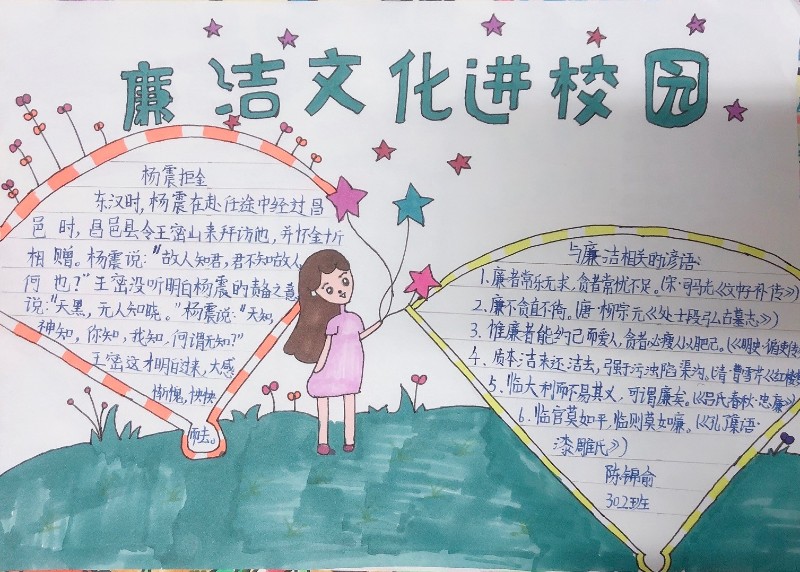 廉洁文化进校园
杨震拒金
东汉时,杨震在赴任途中经过昌
邑时,昌邑县令王密山来拜访他,并怀金十斤
相赠。杨震说:"故人知君,君不知故人
何也?"王密没听明白杨震的责备之意
说:"天黑,无人知晓。"杨震说:"天知,
神知,你知,我知,何谓无知?"
王密这才明白过来,大感
惭愧,怏怏
而去。
与廉洁相关的谚语:
1.廉者常乐无求,贪者常忧不足。(宋·司马光《文中子补传》)
2.廉不贪直不倚。(唐·柳宗元《处士段弘古墓志》)
3.惟廉者能约己而爱人,贪者必瘦人以肥己。(《明史·循吏传
4.质本洁来还洁去,强于污浊陷渠沟。(清·曹雪芹《红楼梦
5.临大利而不易其义,可谓廉矣。(《吕氏春秋·忠廉》)
6.临官莫如平,临则莫如廉。(《孔子集语·
漆雕氏》)
陈锦俞
302班